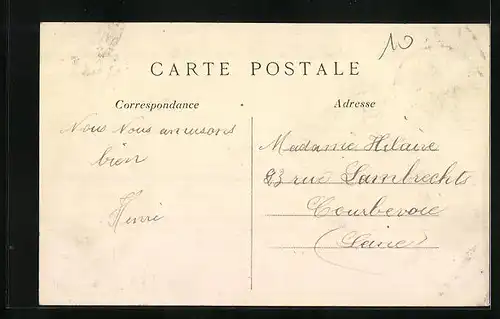 10
CARTE POSTALE
Correspondance
Adresse
Nous Nous amusons
bien
Henri
Madame Hilaire
93 rue Lambrechts
Courbevoie
(Seine)